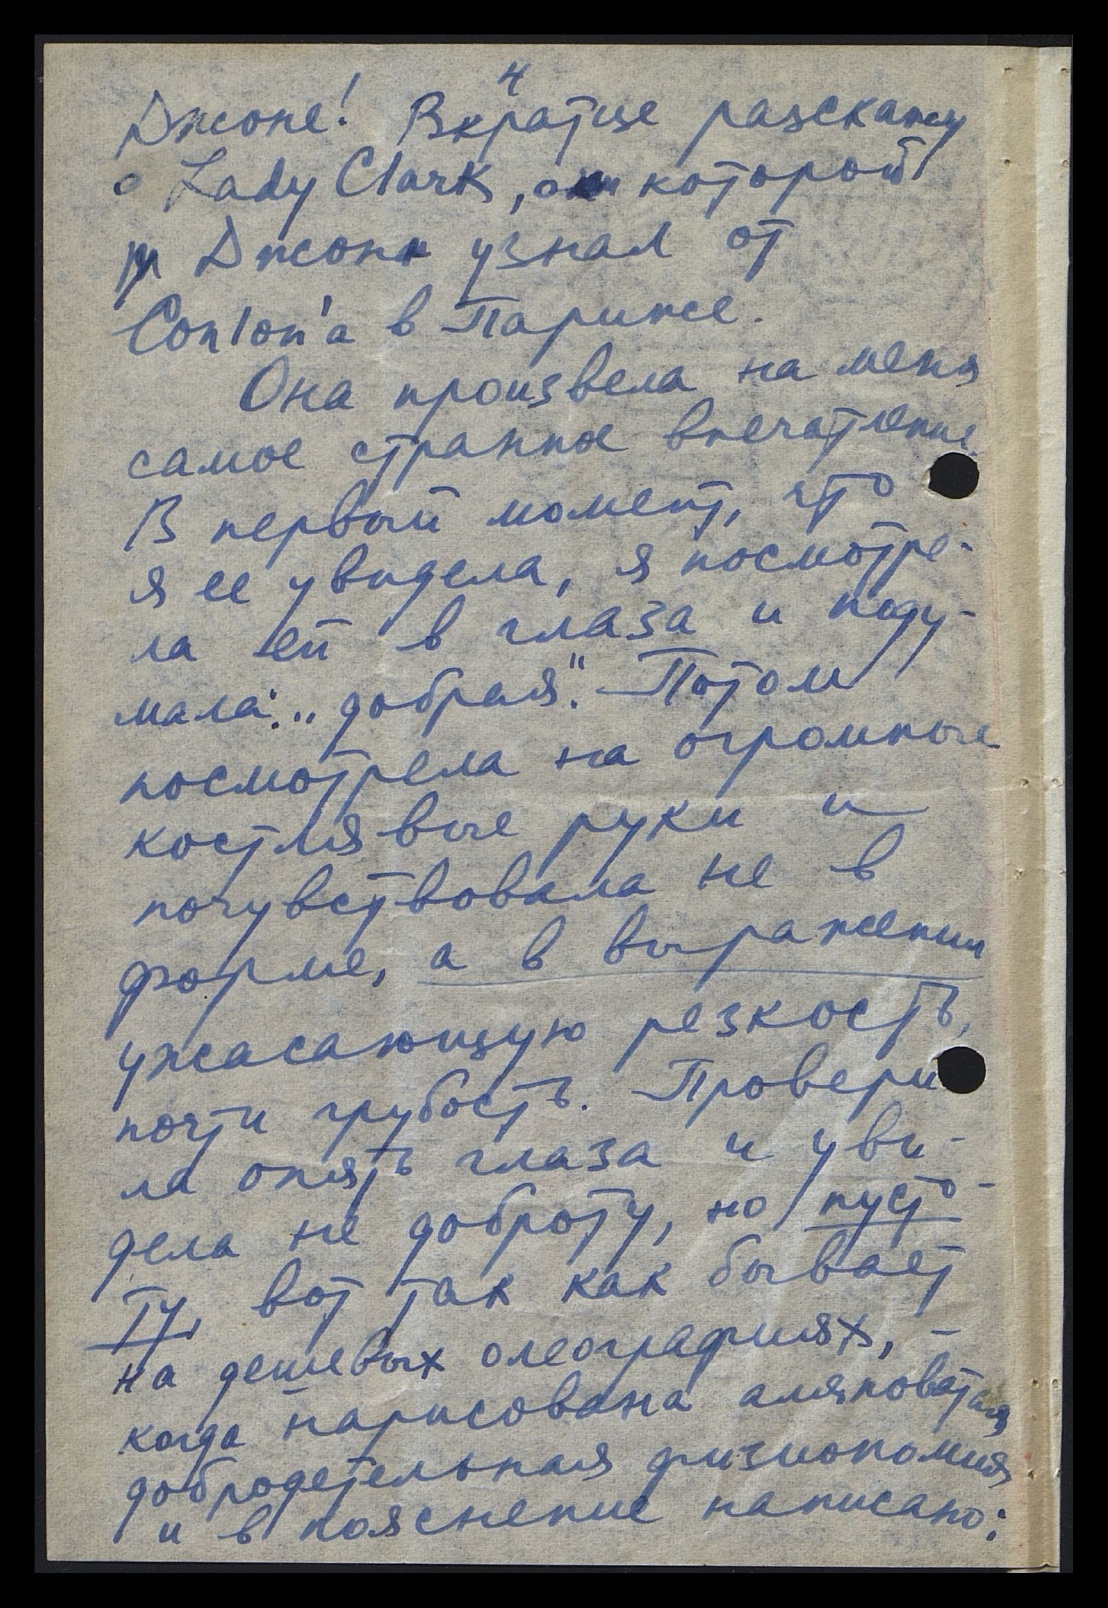 4
Джоне! Вкратце разскажу
о Lady Clark, о которой
Джон узнал от
Conlon'а в Париже.
Она произвела на меня
самое странное впечатление.
В первый момент, что
я ее увидела, я посмотре-
ла ей в глаза и поду-
мала: „добрая". Потом
посмотрела на огромные
костлявые руки и
почувствовала не в
форме, а в выражении
ужасающую резкость,
почти грубость. Провери
ла опять глаза и уви-
дела не доброту, но пусто-
ту, вот так как бывает
на дешевых олеографиях, –
когда нарисована аляповатая
добродетельная физиономия
и в пояснение написано: